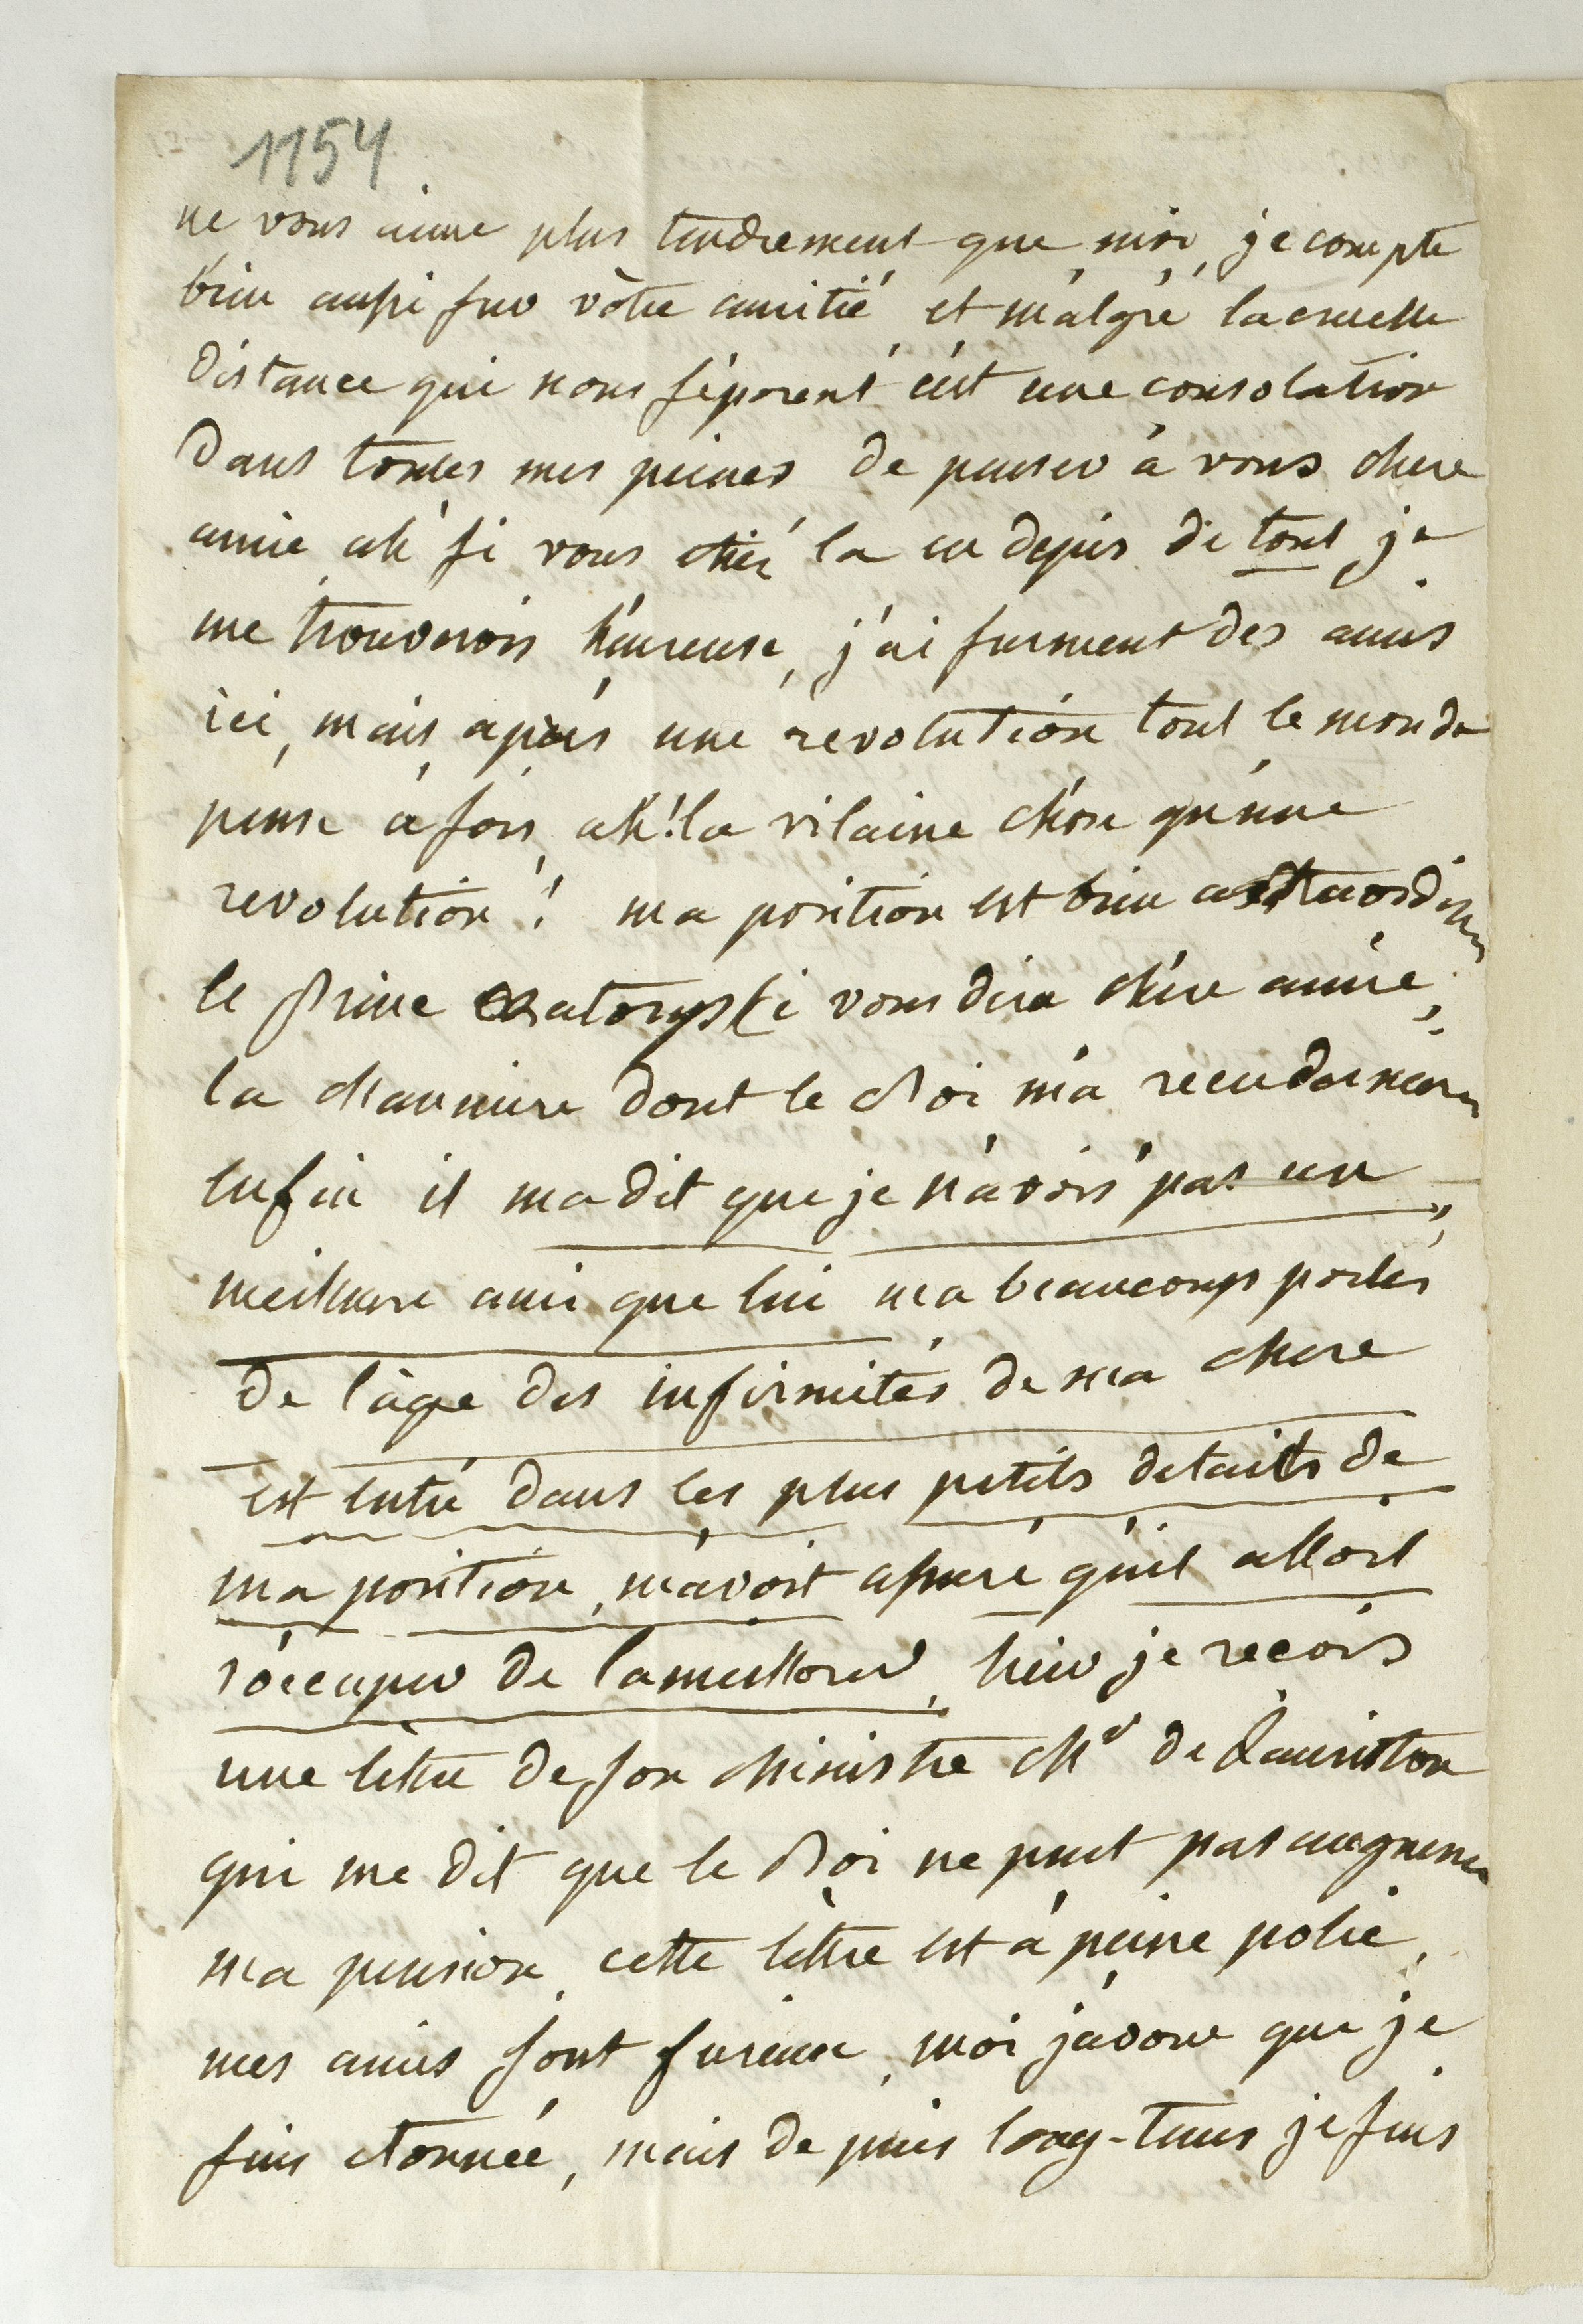 1154
ne vous aime plus tendrement que moi, je compte
bien aussi sur vôtre amitié, et malgré la cruelle
distance qui nous séparent c'est une consolation
dans toutes mes peines de penser à vous chere
amie, ah si vous étiez la en depis de tout je
me trouverois heureuse, j'ai surment des amis
ici, mais, après une révolution tout le monde
pense à sois, ah! la vilaine chose qu'une
revolution! ma position est bien
le Prince Czatoryski vous dira chére amie,
la manniere dont le Roi m'a recu
enfin il ma dit que je n'avois pas un
meilleure ami que lui ma beaucoup parlés
de l'âge des infirmités de ma chere
est entré dans les plus petits details de
ma position, m'avoit assuré qu'il alloit
s'occuper de lameillorer, hier je recois
une lettre de son Ministre Mr de Lauriston
qui me dit que le Roi ne peut pas augmenter
ma pension, cette lettre est à peine polie,
mes amis sont furieux, moi j'avoue que je
suis etonnée, mais de puis long-tems je suis